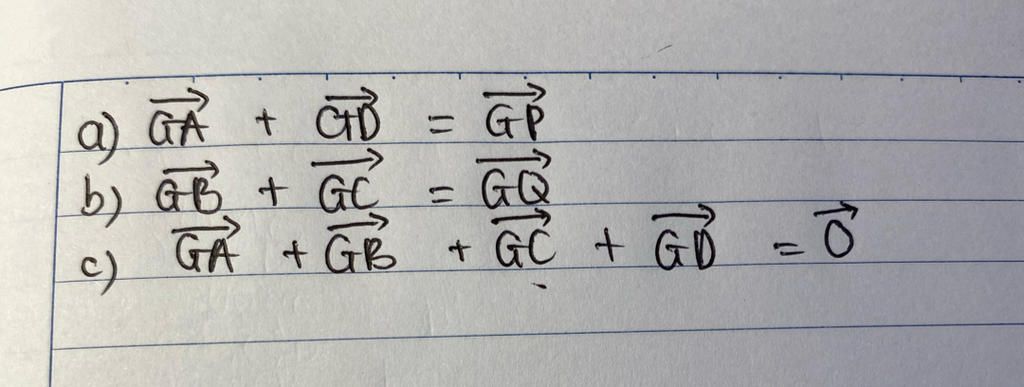 a) $\overrightarrow{GA} + \overrightarrow{GD} = \overrightarrow{GP}$
b) $\overrightarrow{GB} + \overrightarrow{GC} = \overrightarrow{GQ}$
c) $\overrightarrow{GA} + \overrightarrow{GB} + \overrightarrow{GC} + \overrightarrow{GD} = \overrightarrow{0}$